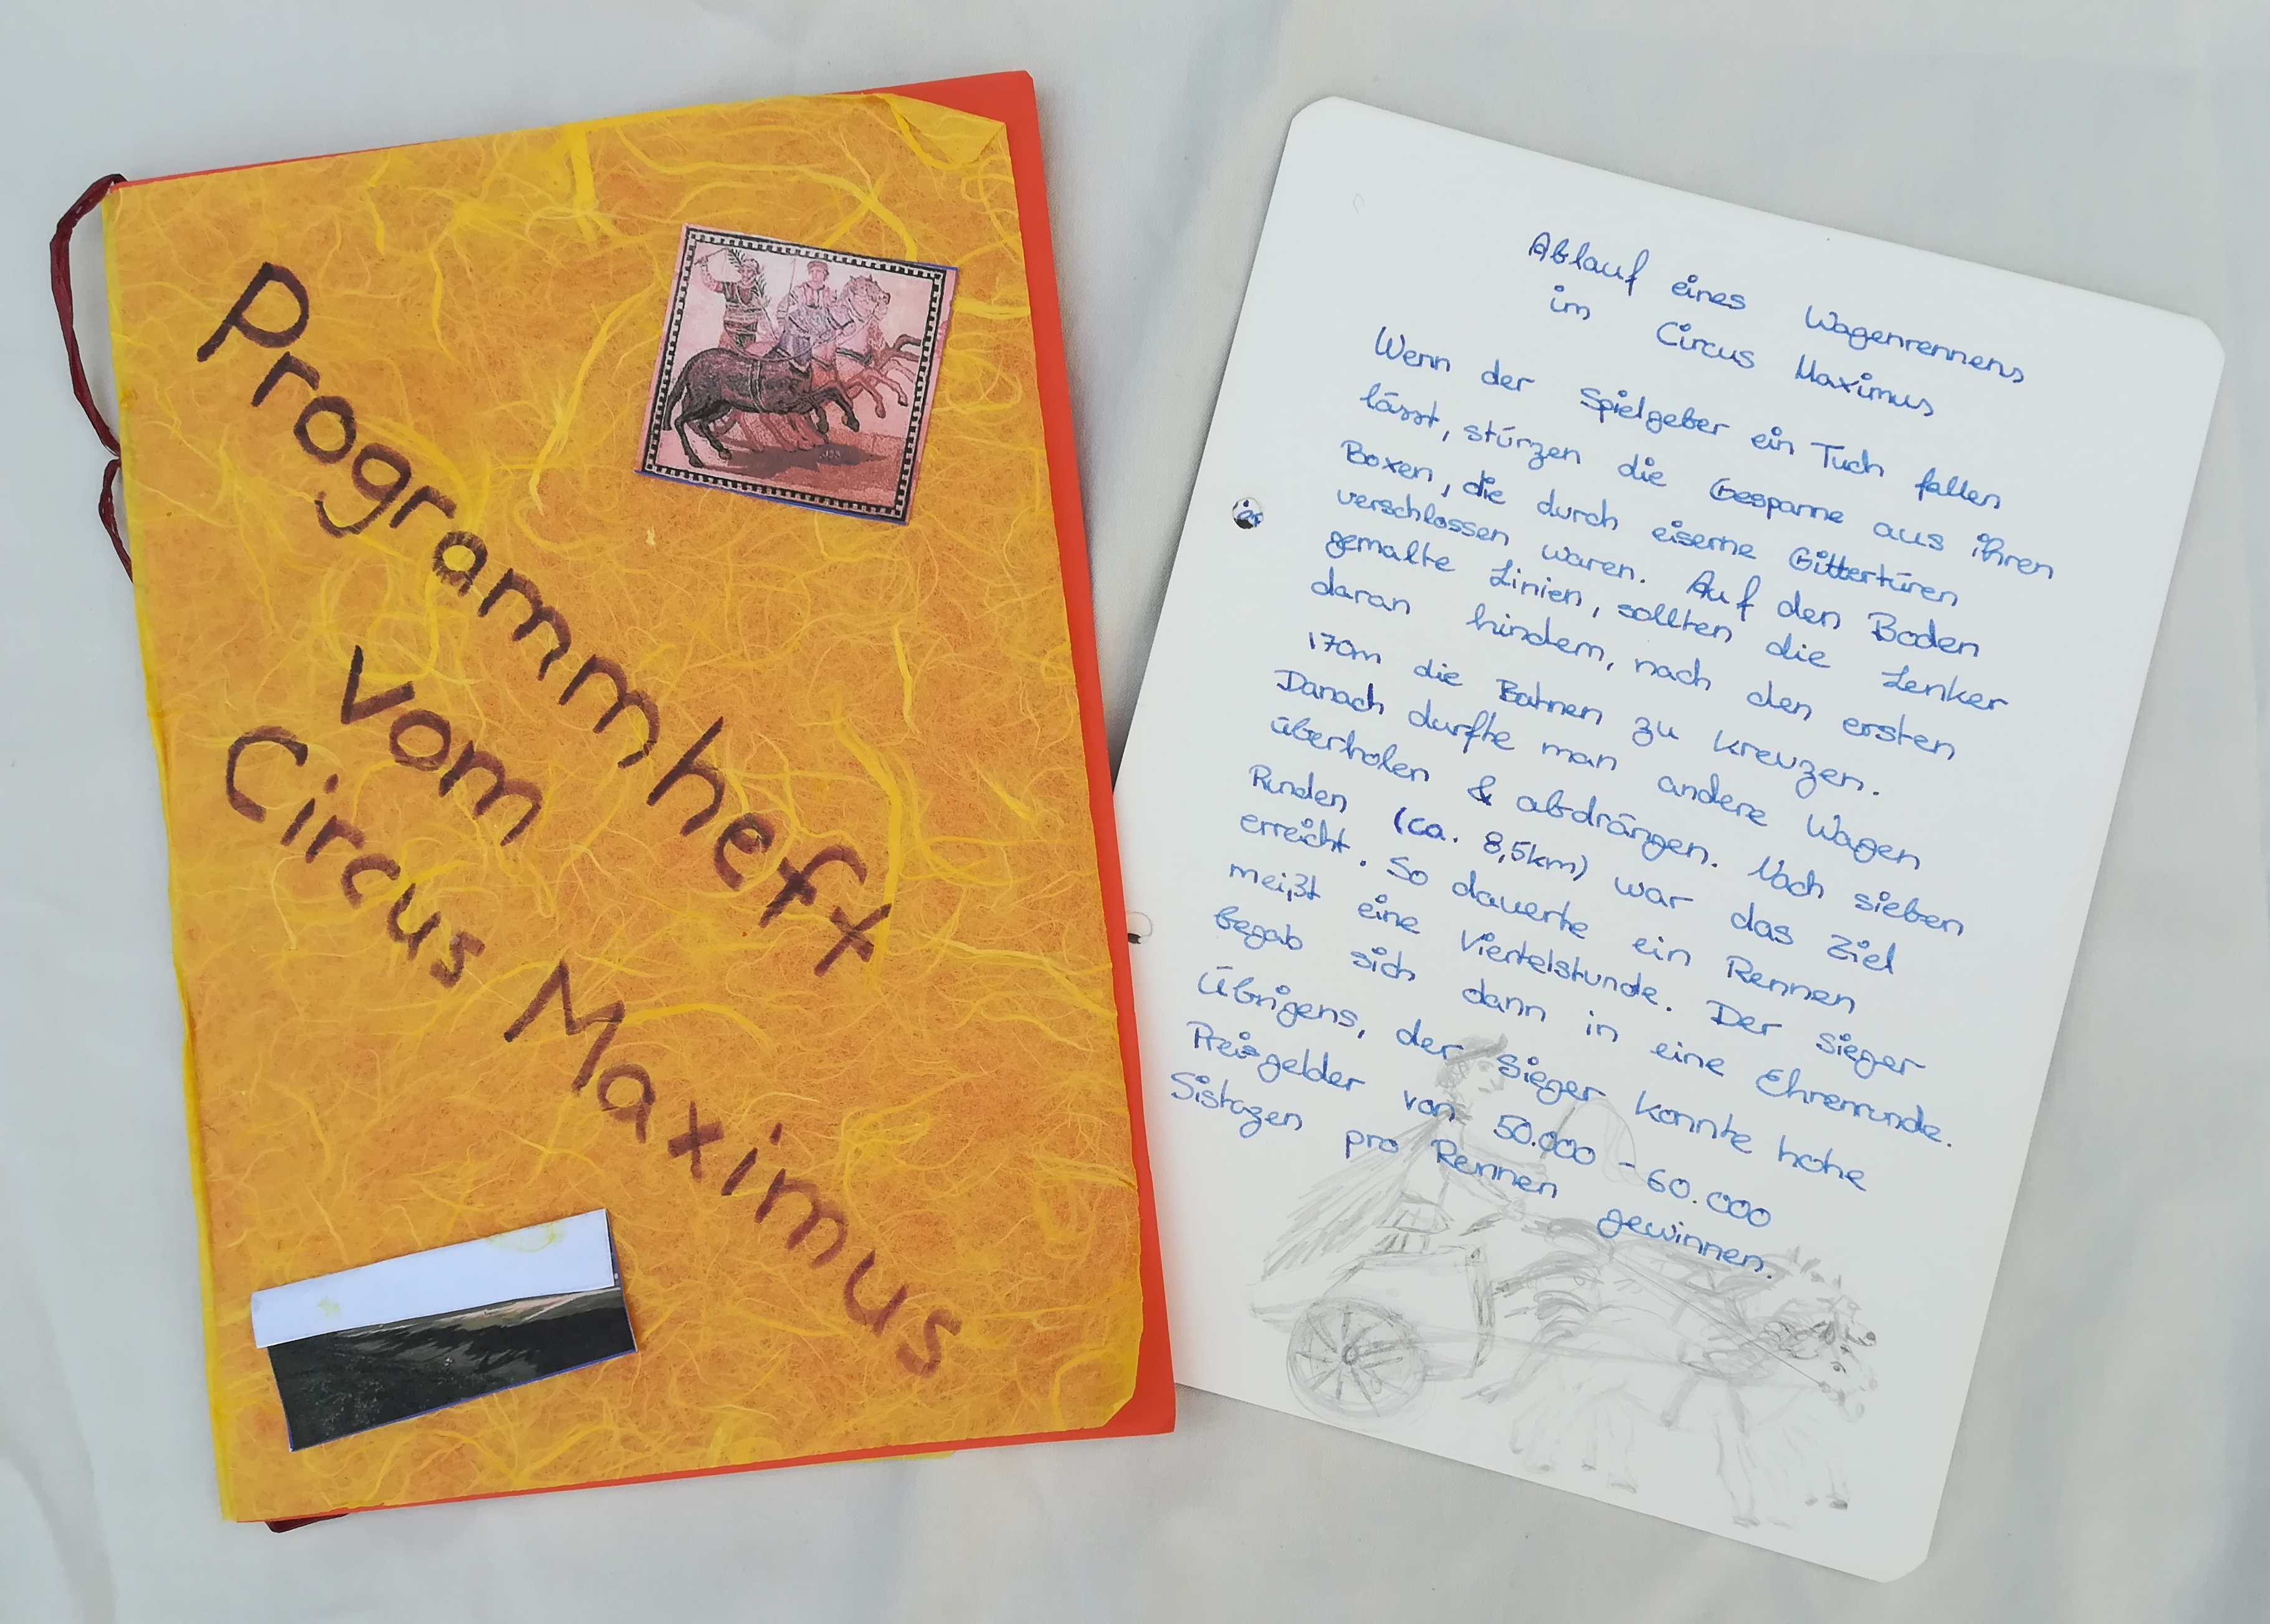 Programmheft
vom
Circus Maximus
Ablauf eines Wagenrennens
im Circus Maximus
Wenn der Spielgeber ein Tuch fallen
lässt, stürzen die Gespanne aus ihren
Boxen, die durch eiserne Gittertüren
verschlossen waren. Auf den Boden
gemalte Linien, sollten die Lenker
daran hindern, nach den ersten
170m die Bahnen zu kreuzen.
Danach durfte man andere Wagen
überholen & abdrängen. Nach sieben
Runden (ca. 8,5km) war das Ziel
erreicht. So dauerte ein Rennen
meißt eine Viertelstunde. Der sieger
begab sich dann in eine Ehrenrunde.
Übrigens, der Sieger konnte hohe
Preisgelder von 50.000 - 60.000
Sistazen pro Rennen gewinnen.